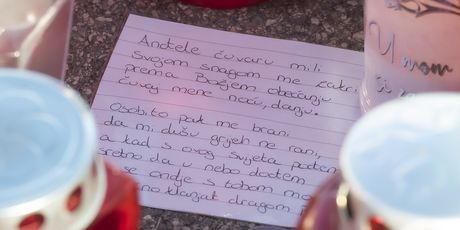 Anđele čuvaru mili
Svojom snagom me zakri
prema Božjem obećanju
čuvaj mene noću, danju.
Osobito pak me brani
da mi dušu grijeh ne rani,
a kad s ovog svijeta
sretno da u nebo dođem
se ondje s tobom
dragom
U mom